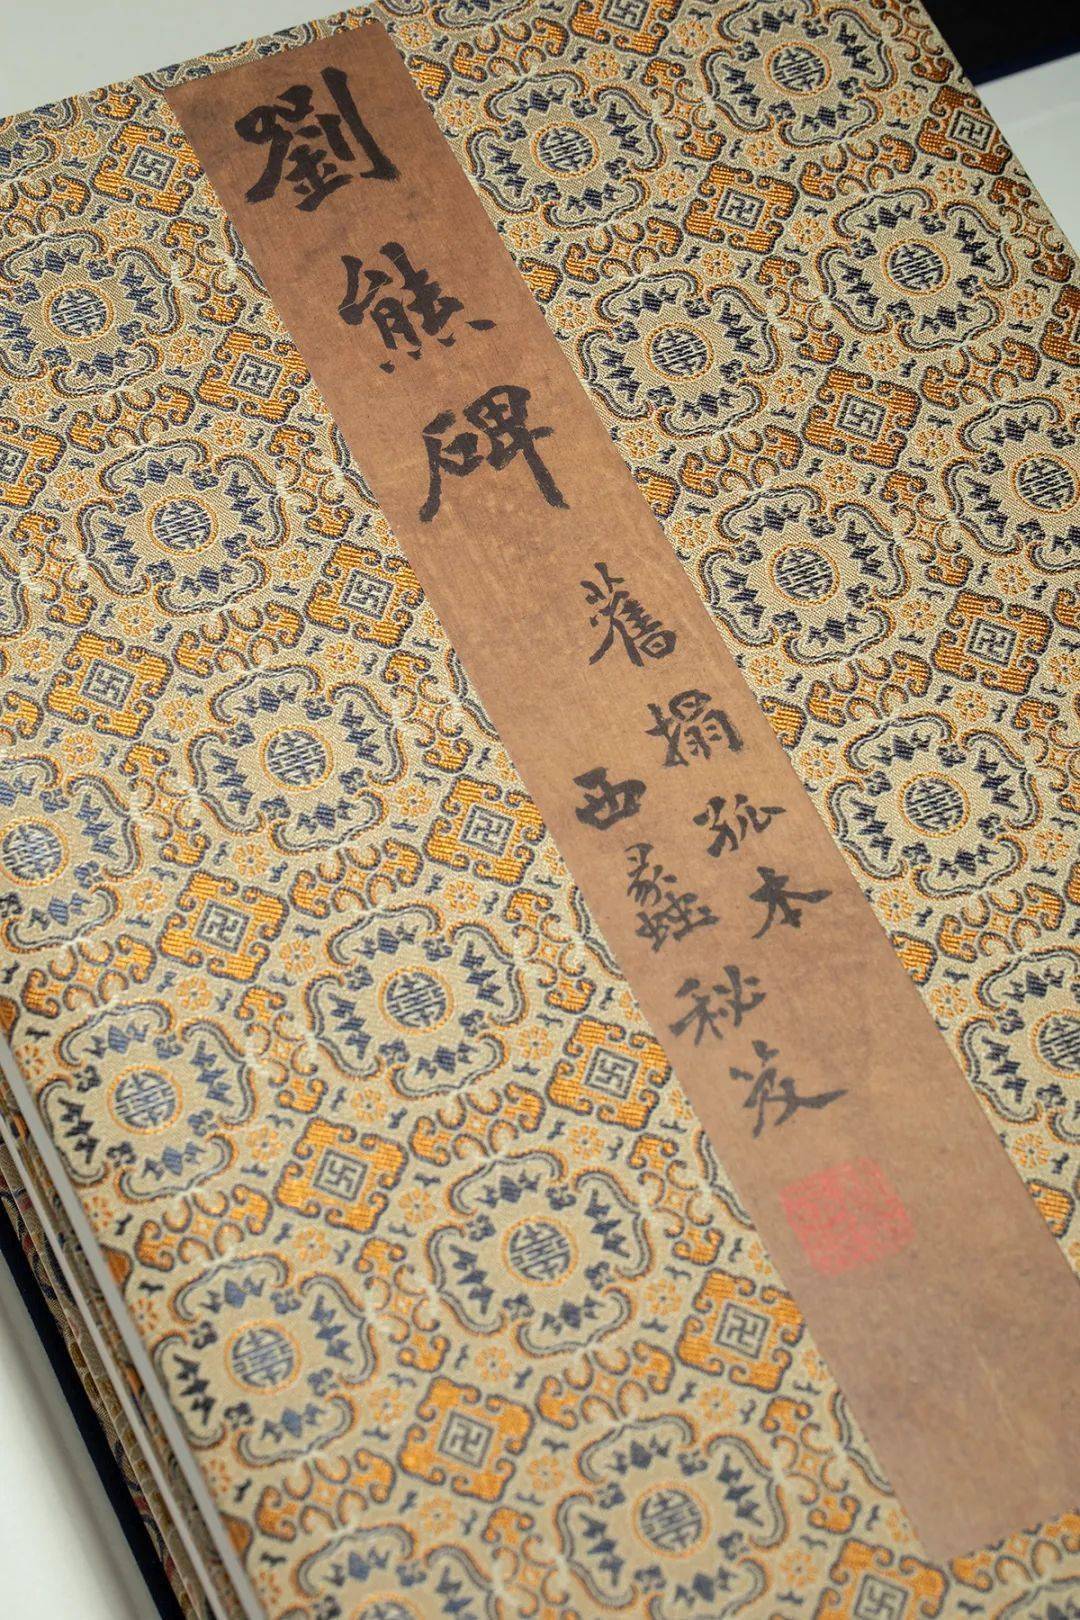 劉熊碑
舊搨孤本
西蠡秘笈